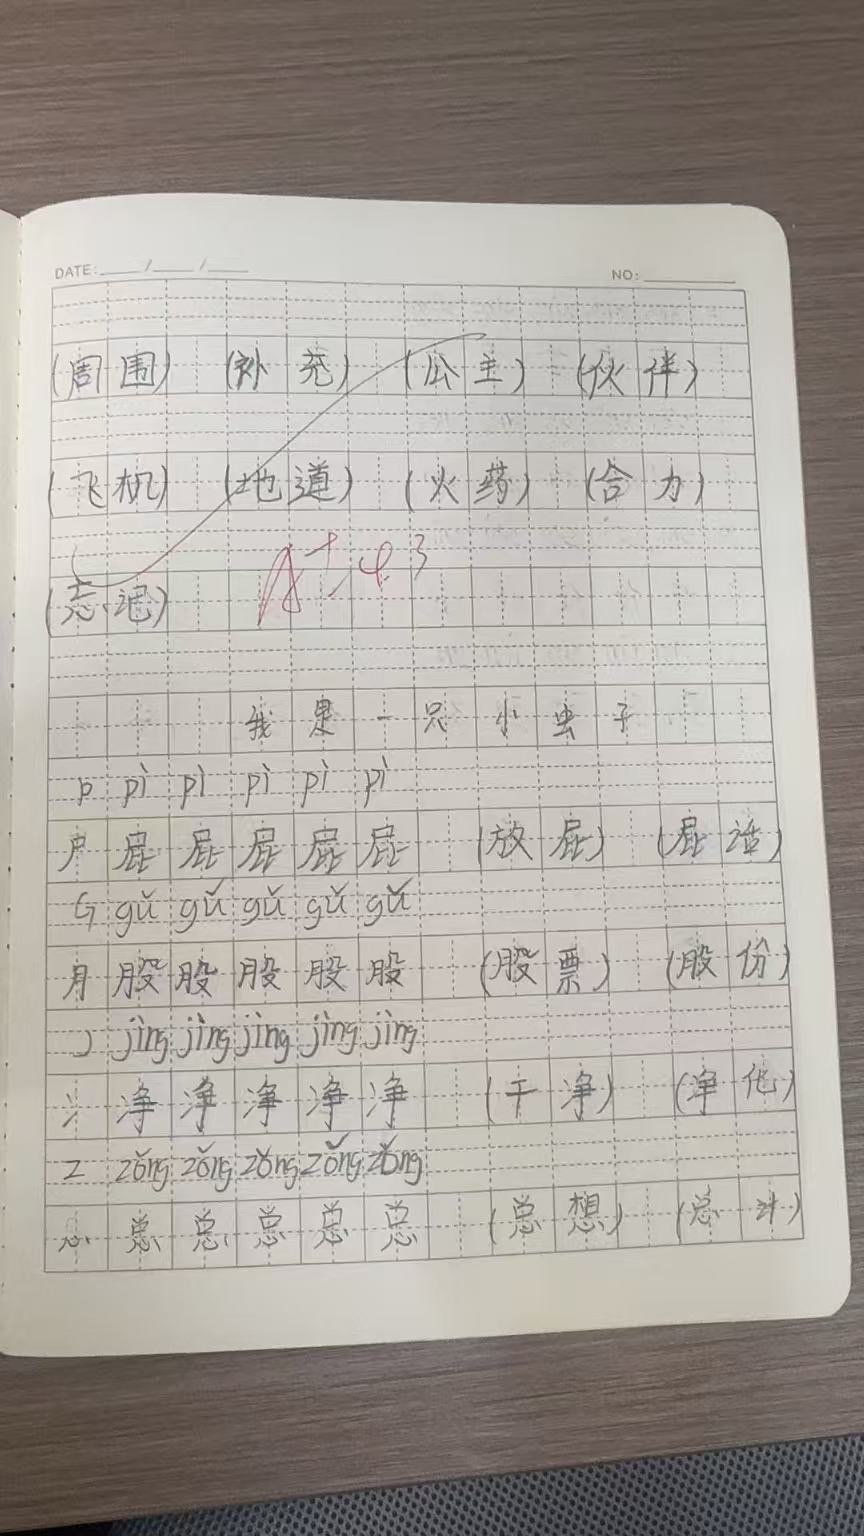 DATE: / / NO:
(周围) (补充) (公主) (伙伴)
(飞机) (地道) (火药) (合力)
(忘记) A+ 4.3
我是一只小虫子
p pì pì pì pì pì
尸 屁 屁 屁 屁 屁 (放屁) (屁话)
G gǔ gǔ gǔ gǔ gǔ
月 股 股 股 股 股 (股票) (股份)
J jìng jìng jìng jìng jìng
冫 净 净 净 净 净 (干净) (净化)
Z zǒng zǒng zǒng zǒng zǒng
总 总 总 总 总 总 (总想) (总计)